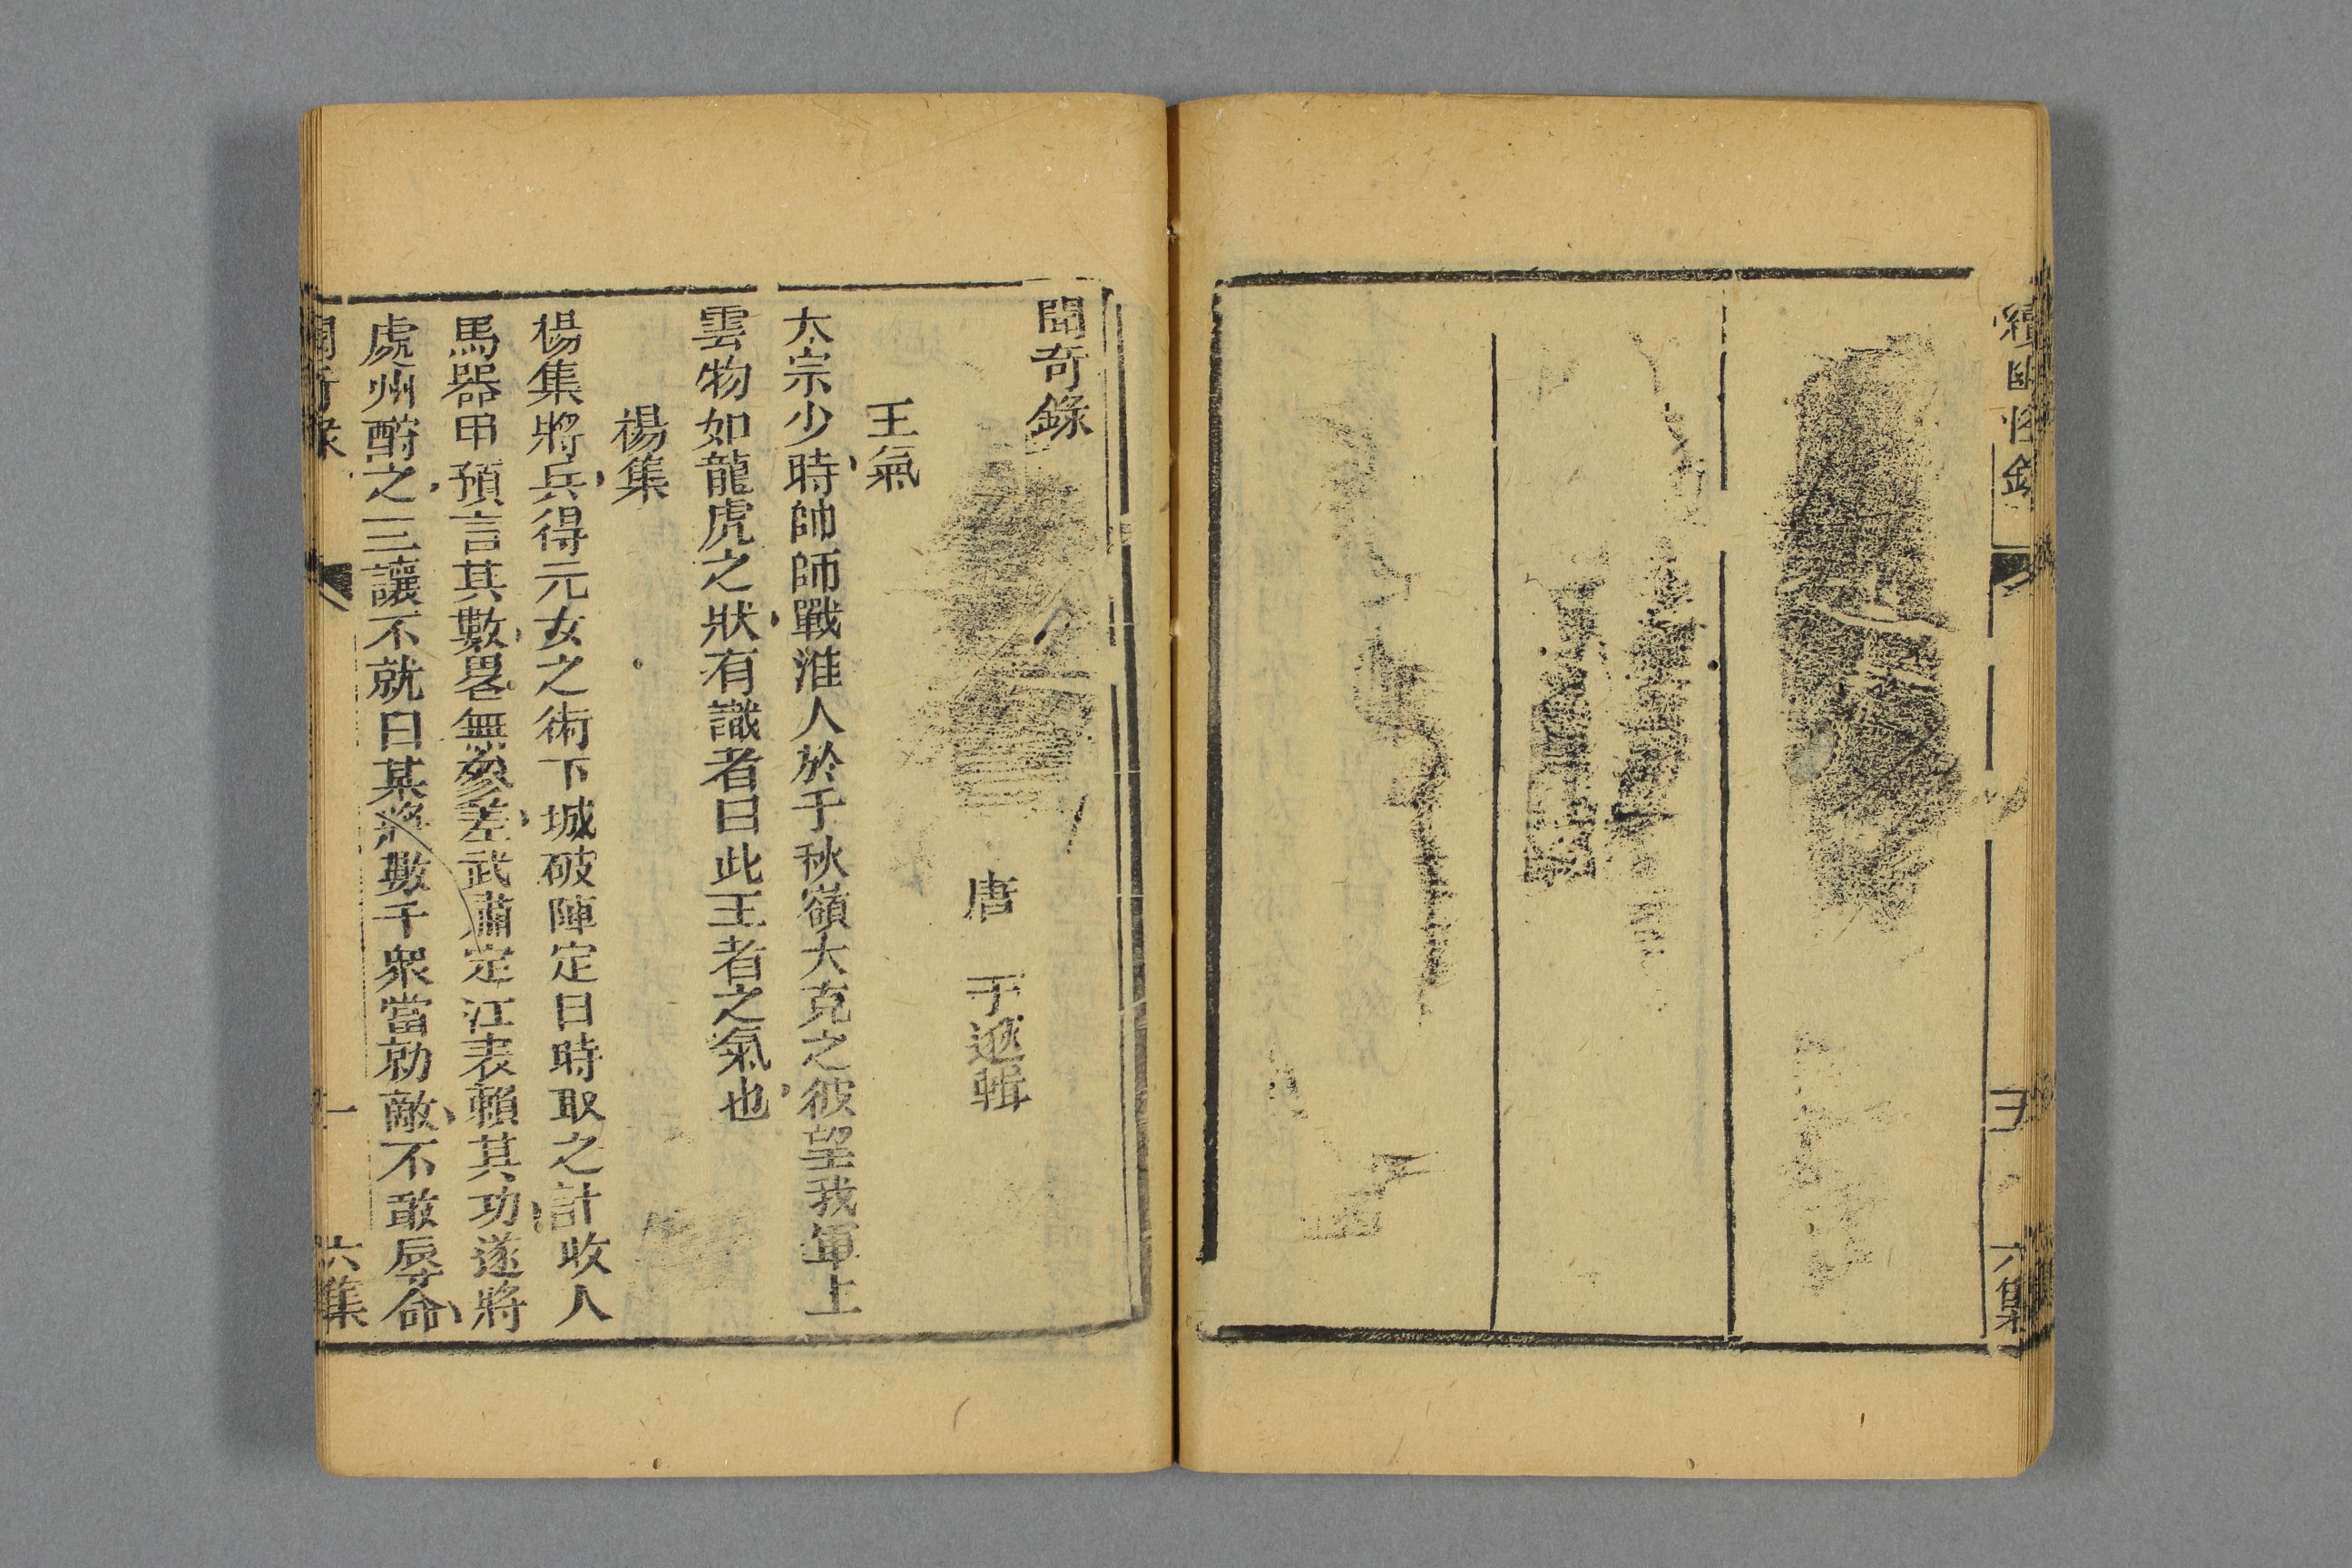 續幽怪錄
五
六集
聞奇錄
唐 于逖輯
王氣
太宗少時帥師戰淮人於千秋嶺大克之彼望我軍上
雲物如龍虎之狀有識者曰此王者之氣也
楊集
楊集將兵得元女之術下城破陣定日時取之計收人
馬器甲預言其數畧無叅差武肅定江表賴其功遂將
處州酧之三讓不就曰某將數千衆當勍敵不敢辱命
聞奇錄
一
六集